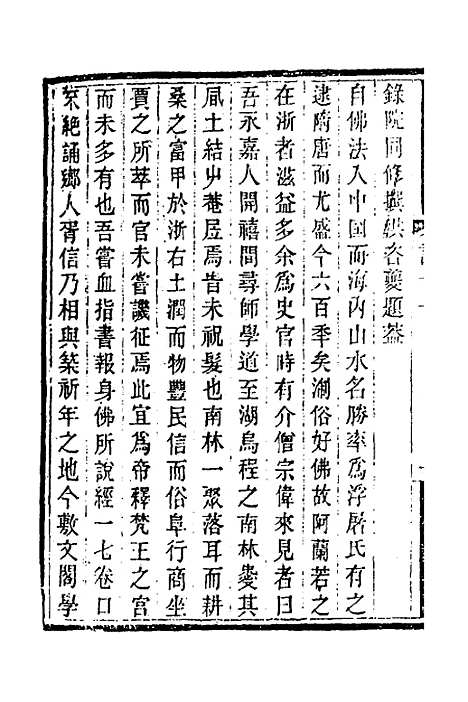 錄院同修撰洪咨夔題蓋
自佛法入中国而海內山水名勝率爲浮屠氏有之
逮隋唐而尤盛今六百季矣淛俗好佛故阿蘭若之
在浙者滋益多余爲史官時有介僧宗偉來見者曰
吾永嘉人開禧間尋師學道至湖烏程之南林愛其
風土結屮菴居焉皆未祝髮也南林一聚落耳而耕
桑之富甲於浙右土潤而物豐民信而俗阜行商坐
賈之所萃而官未嘗譏征焉此宜爲帝釋梵王之宮
而未多有也吾嘗血指書報身佛所說經一七卷口
不絶誦鄉人胥信乃相與築祈年之地今敷文閣學